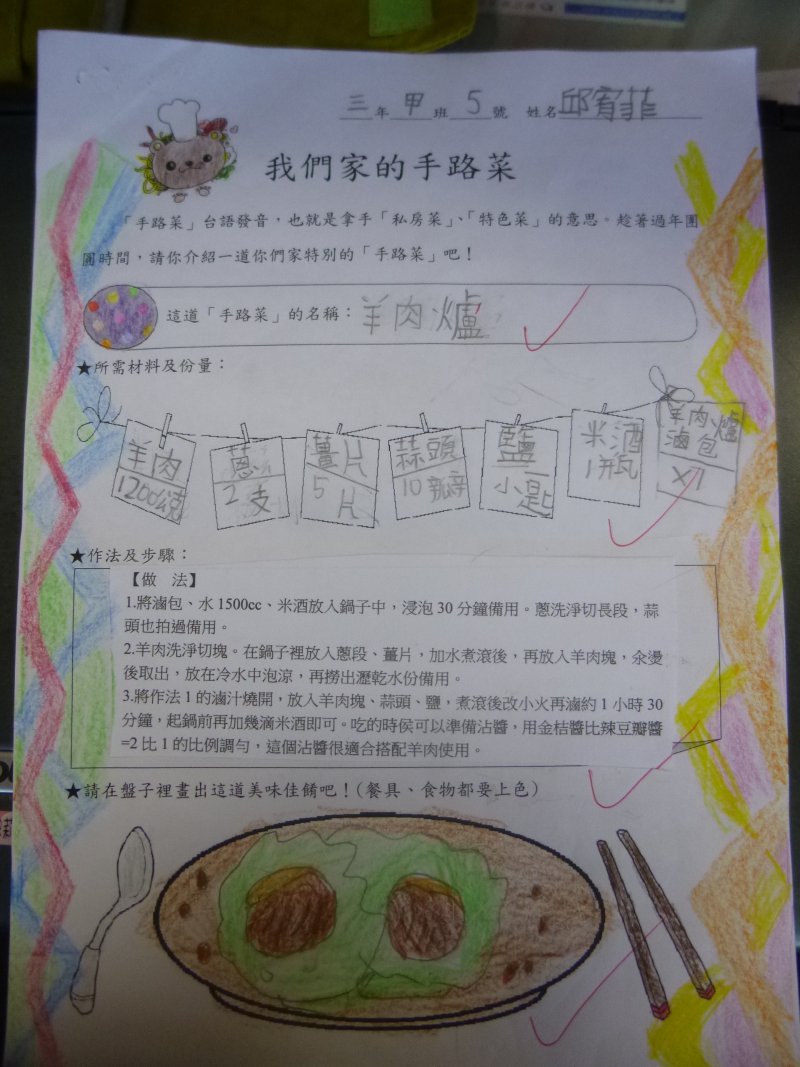 三年甲班5號 姓名邱宥菲
我們家的手路菜
「手路菜」台語發音，也就是拿手「私房菜」、「特色菜」的意思。趁著過年團
圓時間，請你介紹一道你們家特別的「手路菜」吧！
這道「手路菜」的名稱：羊肉爐
★所需材料及份量：
羊肉
1200公克
蔥
2支
薑片
5片
蒜頭
10瓣
鹽
一小匙
米酒
1瓶
羊肉爐
滷包
X1
★作法及步驟：
【做 法】
1.將滷包、水1500cc、米酒放入鍋子中，浸泡30分鐘備用。蔥洗淨切長段，蒜
頭也拍過備用。
2.羊肉洗淨切塊。在鍋子裡放入蔥段、薑片，加水煮滾後，再放入羊肉塊，汆燙
後取出，放在冷水中泡涼，再撈出瀝乾水份備用。
3.將作法1的滷汁燒開，放入羊肉塊、蒜頭、鹽，煮滾後改小火再滷約1小時30
分鐘，起鍋前再加幾滴米酒即可。吃的時侯可以準備沾醬，用金桔醬比辣豆瓣醬
=2比1的比例調勻，這個沾醬很適合搭配羊肉使用。
★請在盤子裡畫出這道美味佳餚吧！（餐具、食物都要上色）